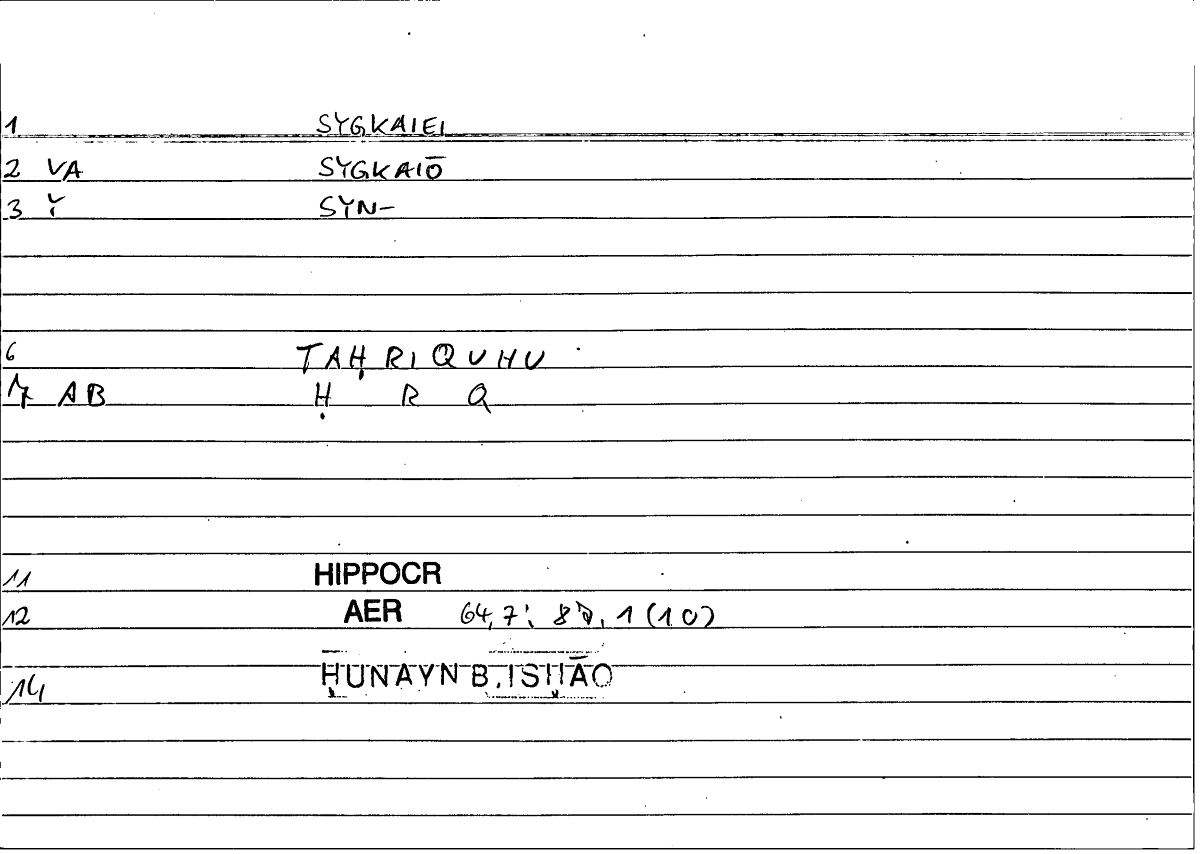 1 SYGKAIEI
2 VA SYGKAIŌ
3 Y SYN-
6 TAḤRIQUHU
7 AB Ḥ R Q
11 HIPPOCR
12 AER 64,7; 1 (10)
14 ḤUNAYN B. ISḤĀQ